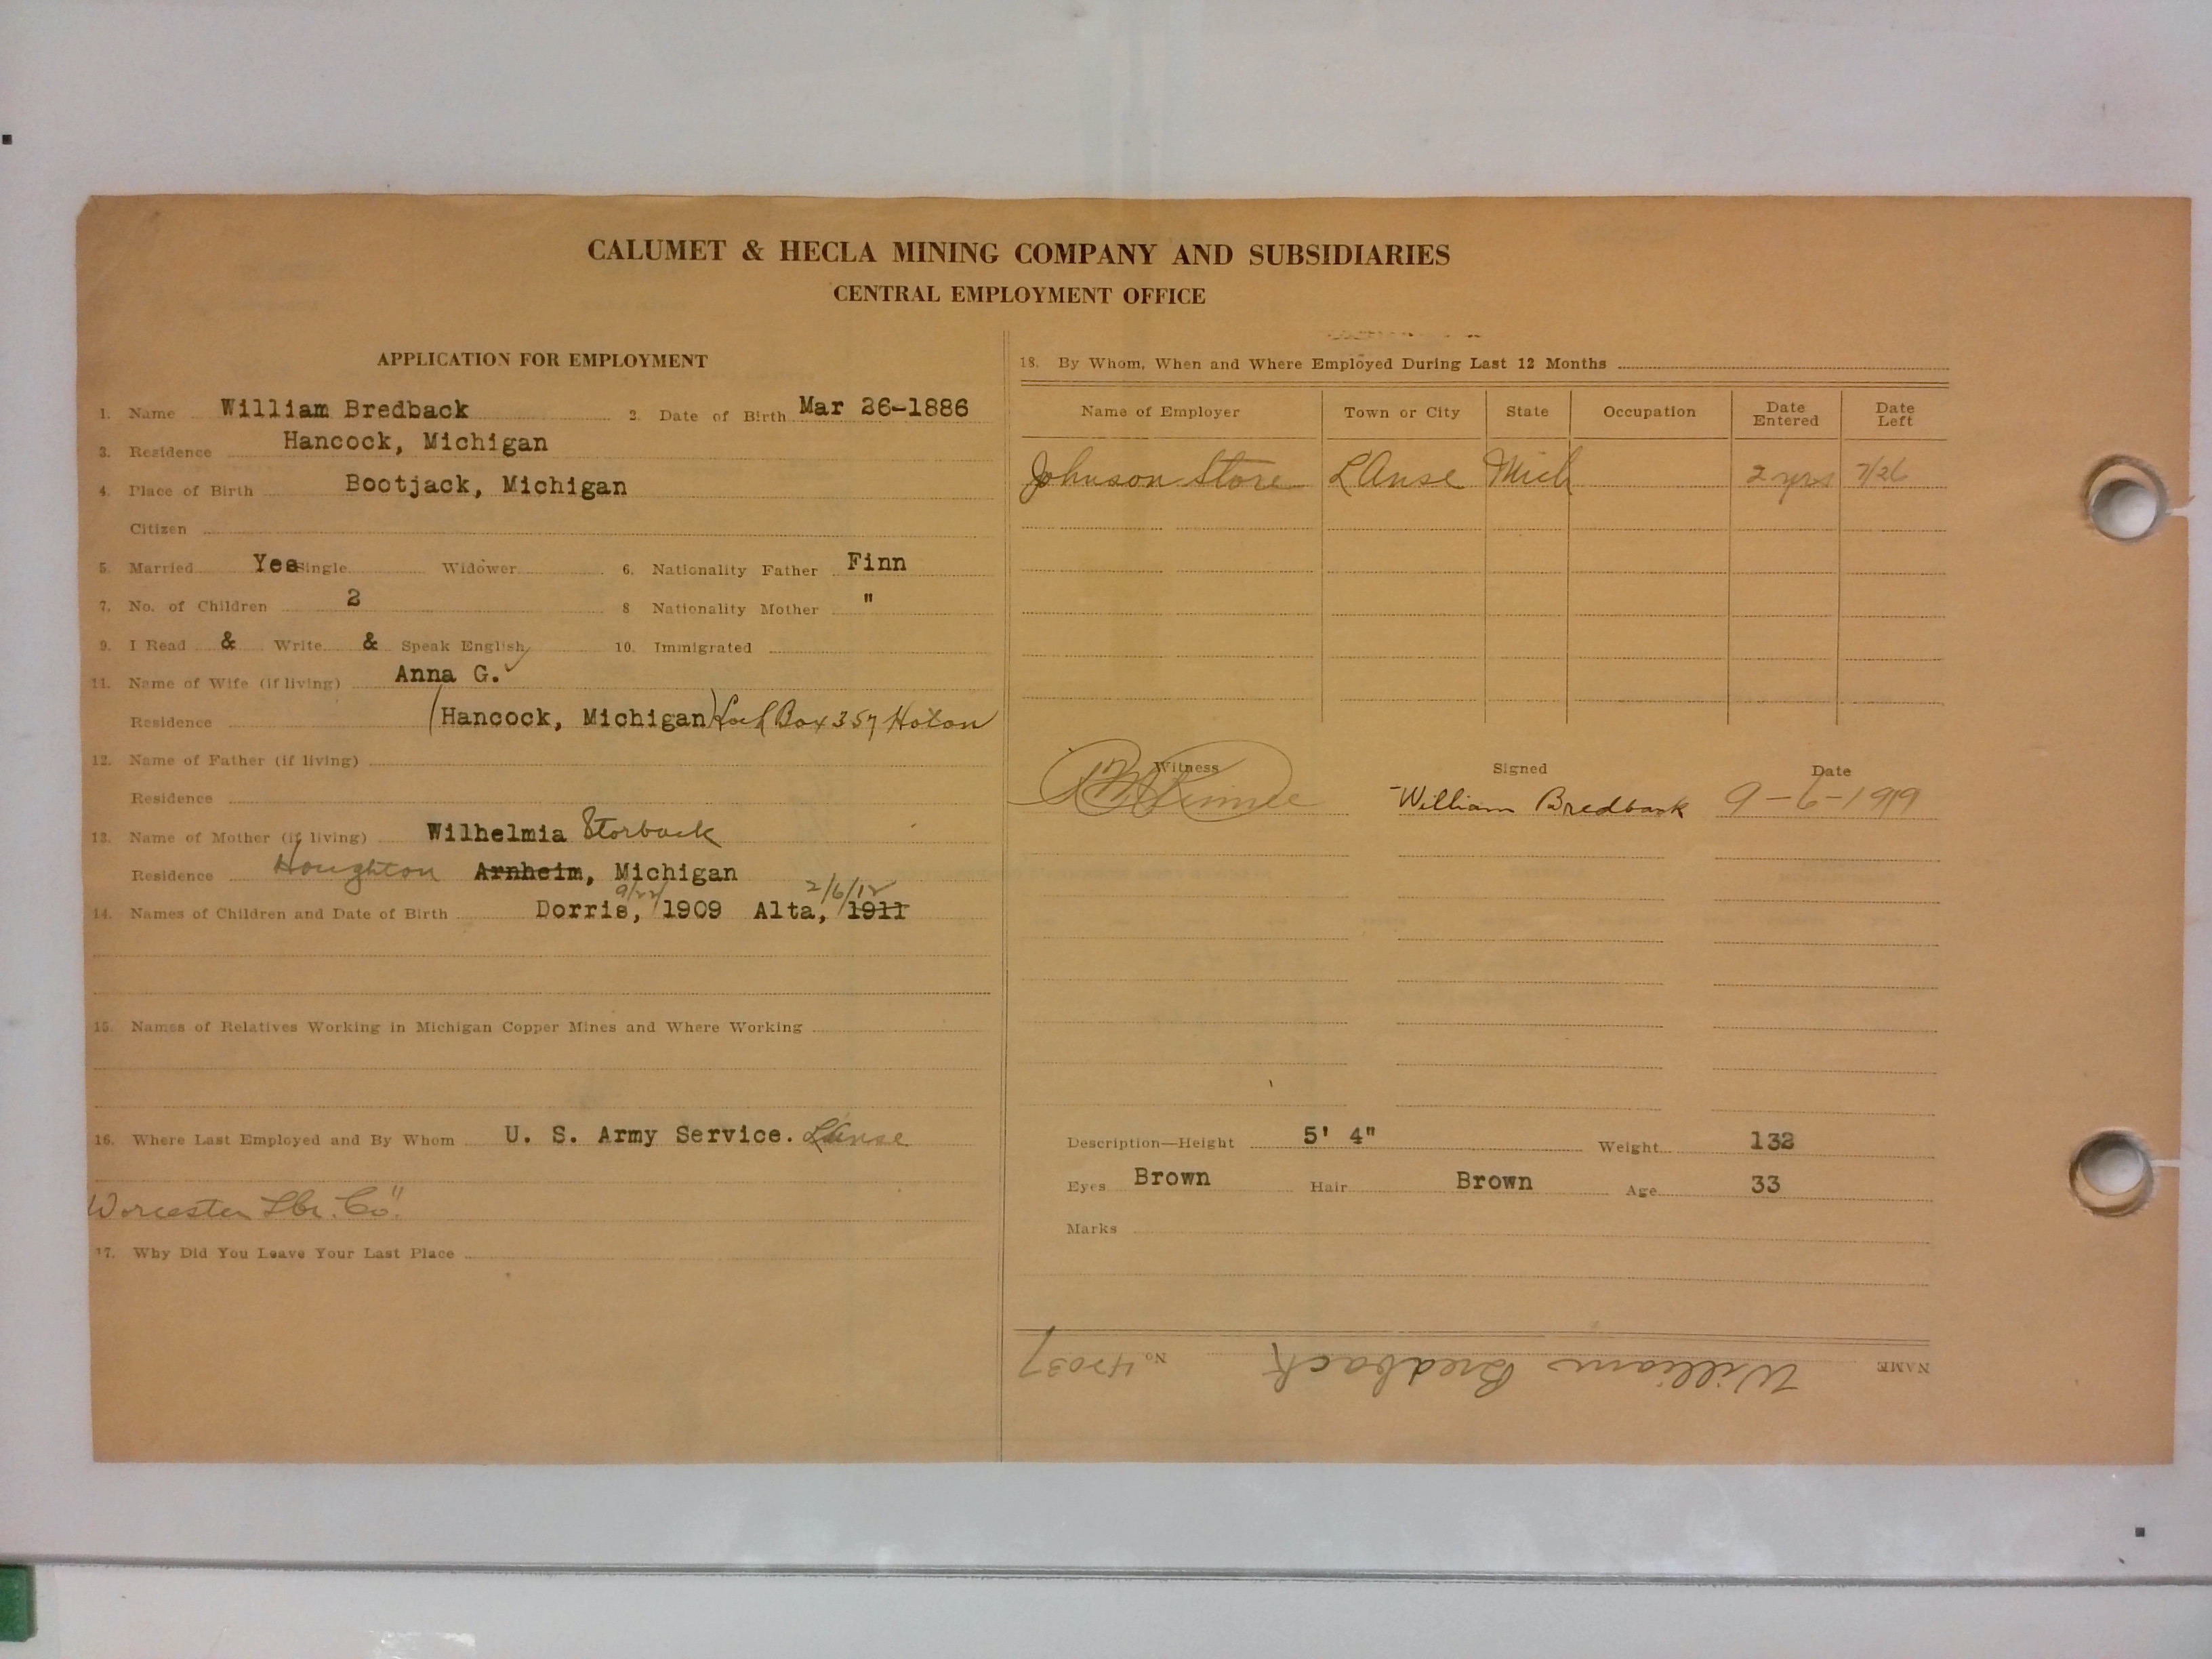 CALUMET & HECLA MINING COMPANY AND SUBSIDIARIES
CENTRAL EMPLOYMENT OFFICE
APPLICATION FOR EMPLOYMENT
1. Name William Bredback 2. Date of Birth Mar 26-1886
3. Residence Hancock, Michigan
4. Place of Birth Bootjack, Michigan
Citizen
5. Married Yes Single Widower 6. Nationality Father Finn
7. No. of Children 2 8 Nationality Mother "
9. I Read & Write & Speak English 10. Immigrated
11. Name of Wife (if living) Anna G.
Residence (Hancock, Michigan) Box 357 Hoton
12. Name of Father (if living)
Residence
13. Name of Mother (if living) Wilhelmia Storback
Residence Houghton Arnheim, Michigan
9/22/ 2/6/12
14. Names of Children and Date of Birth Dorris, 1909 Alta, 1911
15. Names of Relatives Working in Michigan Copper Mines and Where Working
16. Where Last Employed and By Whom U. S. Army Service. L'Anse
Worcester Lbr. Co."
17. Why Did You Leave Your Last Place
18. By Whom, When and Where Employed During Last 12 Months
Name of Employer Town or City State Occupation Date Entered Date Left
Johnson Store LAnse Mich 2 yrs 7/26
Witness Signed Date
William Bredback 9-6-1919
Description—Height 5' 4" Weight 132
Eyes Brown Hair Brown Age 33
Marks
NAME William Bredback No. 47037